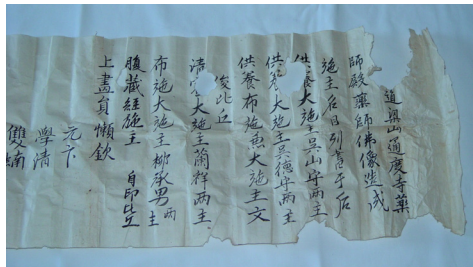 道興山適慶寺藥
師殿藥師佛像造成
施主名目列書于后
供養大施主吳山守兩主
供養大施主吳德守兩主
供養布施無大施主文
俊比丘
清 大施主蘭祥兩主
布施大施主柳承男兩主
腹藏經施主 自印比丘
上畫員懶欽
元卞
學清
雙